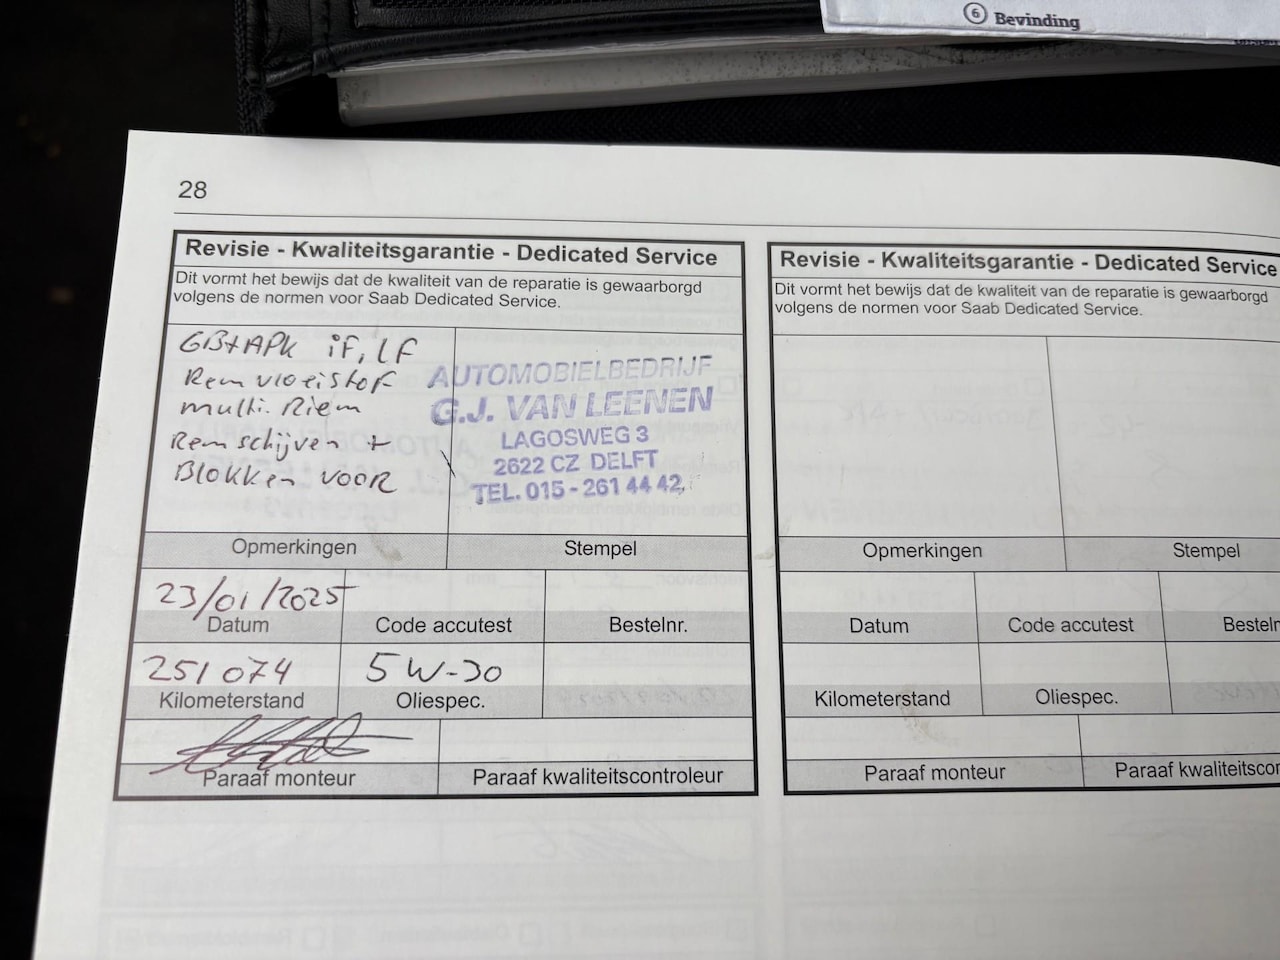 6 Bevinding
28
Revisie - Kwaliteitsgarantie - Dedicated Service
Dit vormt het bewijs dat de kwaliteit van de reparatie is gewaarborgd
volgens de normen voor Saab Dedicated Service.
GB+APK iF, LF
Remvloeistof
multi. Riem
Remschijven +
Blokken VOOR
AUTOMOBIELBEDRIJF
G.J. VAN LEENEN
LAGOSWEG 3
2622 CZ DELFT
TEL. 015 - 261 44 42
Opmerkingen
Stempel
23/01/2025
Datum
Code accutest
Bestelnr.
251074
5W-30
Kilometerstand
Oliespec.
Paraaf monteur
Paraaf kwaliteitscontroleur
Revisie - Kwaliteitsgarantie - Dedicated Service
Dit vormt het bewijs dat de kwaliteit van de reparatie is gewaarborgd
volgens de normen voor Saab Dedicated Service.
Opmerkingen
Stempel
Datum
Code accutest
Besteln
Kilometerstand
Oliespec.
Paraaf monteur
Paraaf kwaliteitscon